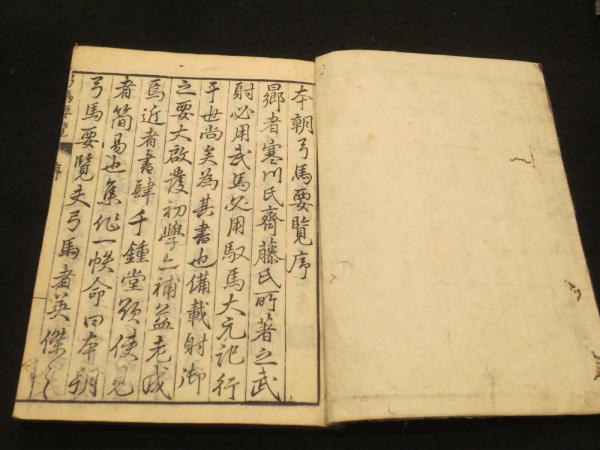 本朝弓馬要覽序
曏者寒川氏齊藤氏所著之武
射必用武馬必用馭馬大元記行
于世尚矣為其書也備載射御
之要大啟發初學亦補益老成
焉近者書肆千鍾堂欲使見
者簡易也集作一帙命曰本朝
弓馬要覽夫弓馬者英傑之
弓馬要覽 序